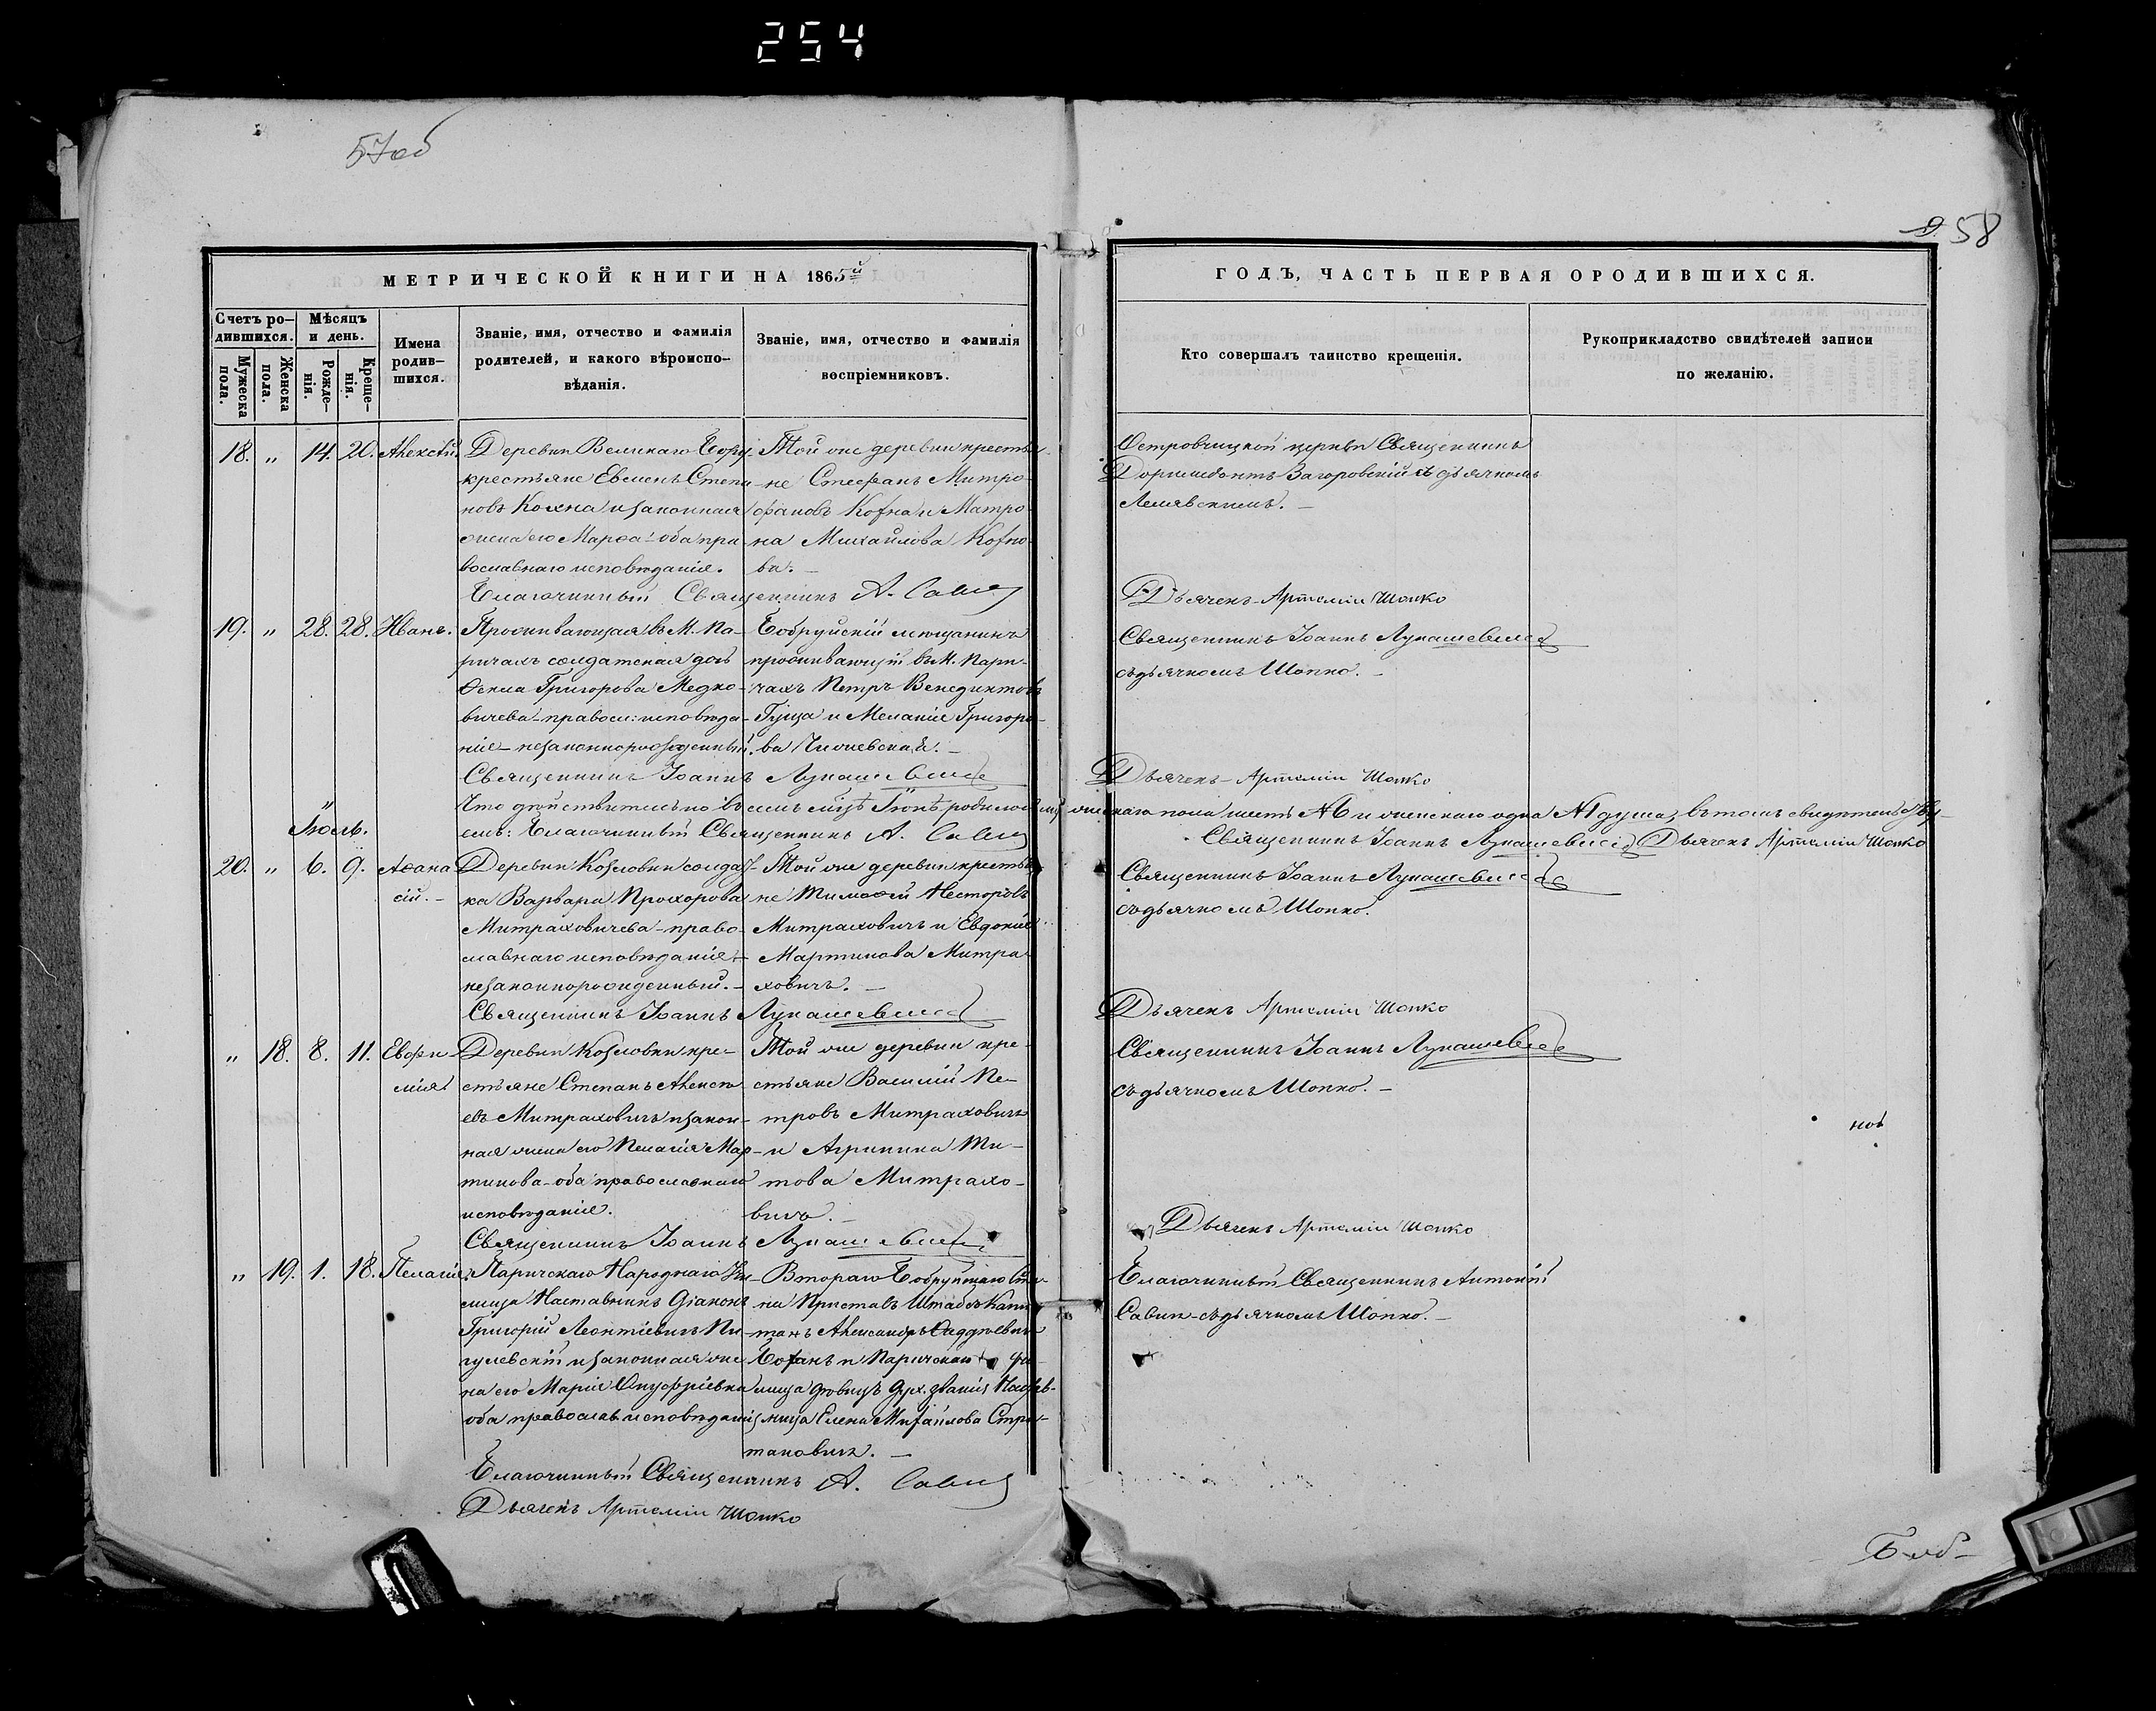 254
57об
58
МЕТРИЧЕСКОЙ КНИГИ НА 1865й
ГОДЪ, ЧАСТЬ ПЕРВАЯ ОРОДИВШИХСЯ.
Счетъ ро-
дившихся.
Мужеска
пола.
Женска
пола.
Мѣсяцъ
и день.
Рожде-
нія.
Креще-
нія.
Имена
родив-
шихся.
Званіе, имя, отчество и фамилія
родителей, и какого вѣроиспо-
вѣданія.
Званіе, имя, отчество и фамилія
воспріемниковъ.
Кто совершалъ таинство крещенія.
Рукоприкладство свидѣтелей записи
по желанію.
18. „ 14. 20. Алексѣй.
Деревни Великаго Бору
крестьяне Евменъ Степа-
новъ Кохна и законная
жена его Марѳа - оба пра-
вославнаго исповѣданія.
Той же деревни крестья-
не Стефанъ Митро-
фановъ Кохна и Матро-
на Михайлова Кохно-
ва. —
Островчицкой церкви Священникъ
Доримедонтъ Загоровскій съ дьячкомъ
Благочинный Священникъ А. Савич
Дьячекъ Артемій Шопко
19. „ 28. 28. Иванъ.
Проживающая въ М. Па-
ричахъ солдатская дочь
Ѳекла Григорова Медко-
вичева - правосл: исповѣда-
нія - незаконнорожденный.
Бобруйскій мѣщанинъ
проживающій въ М. Пари-
чахъ Петръ Венедиктовъ
Гуща и Меланія Григоро-
ва
Священникъ Іоаннъ Лукашевичъ
съ дьячкомъ Шопко. —
Священникъ Іоаннъ Лукашевичъ
Дьячекъ Артемій Шопко
Что дѣйствительно въ семъ мцѣ Іюнѣ родилось мужескаго пола шесть №6 и женскаго одна №1 душа, въ томъ свидѣтельству-
емъ: Благочинный Священникъ А. Савич
Священникъ Іоаннъ Лукашевичъ Дьячекъ Артемій Шопко
Іюль.
20. „ 6. 9. Аѳана
сій. —
Деревни Козловки солдат-
ка Варвара Прохорова
Митраховичева - право-
славнаго исповѣданія -
незаконнорожденный. —
Той же деревни крестья-
не Тимоѳей Несторовъ
Митраховичъ и Евдокія
Мартинова Митра-
ховичъ. —
Священникъ Іоаннъ Лукашевичъ
съ дьячкомъ Шопко.
Священникъ Іоаннъ Лукашевичъ
Дьячекъ Артемій Шопко
„ 18. 8. 11. Евфи-
мія
Деревни Козловки кре-
стьяне Степанъ Алексѣ-
евъ Митраховичъ и закон-
ная жена его Пелагія Мар-
тинова - оба православнаго
исповѣданія.
Той же деревни кре-
стьяне Василій Пе-
тровъ Митраховичъ
и Агрипина Ти-
това Митрахо-
вичъ. —
Священникъ Іоаннъ Лукашевичъ
съ дьячкомъ Шопко. —
Священникъ Іоаннъ Лукашевичъ
Дьячекъ Артемій Шопко
„ 19. 1. 18. Пелагія
Паричскаго Народнаго Учи-
лища Наставникъ Діаконъ
Григорій Леонтіевичъ Пи-
гулевскій и законная же-
на его Марія Онуфріевна
оба православ. исповѣданія
Втораго Бобруйскаго Ста-
на Приставъ Штабсъ Капи-
танъ Александръ Фаддѣевичъ
и Паричскаго Учи-
лища дѣвицъ дух. званія
Елена Михайлова
Благочинный Священникъ Антоній
Савич - съ дьячкомъ Шопко. —
Благочинный Священникъ А. Савич
Дьячекъ Артемій Шопко